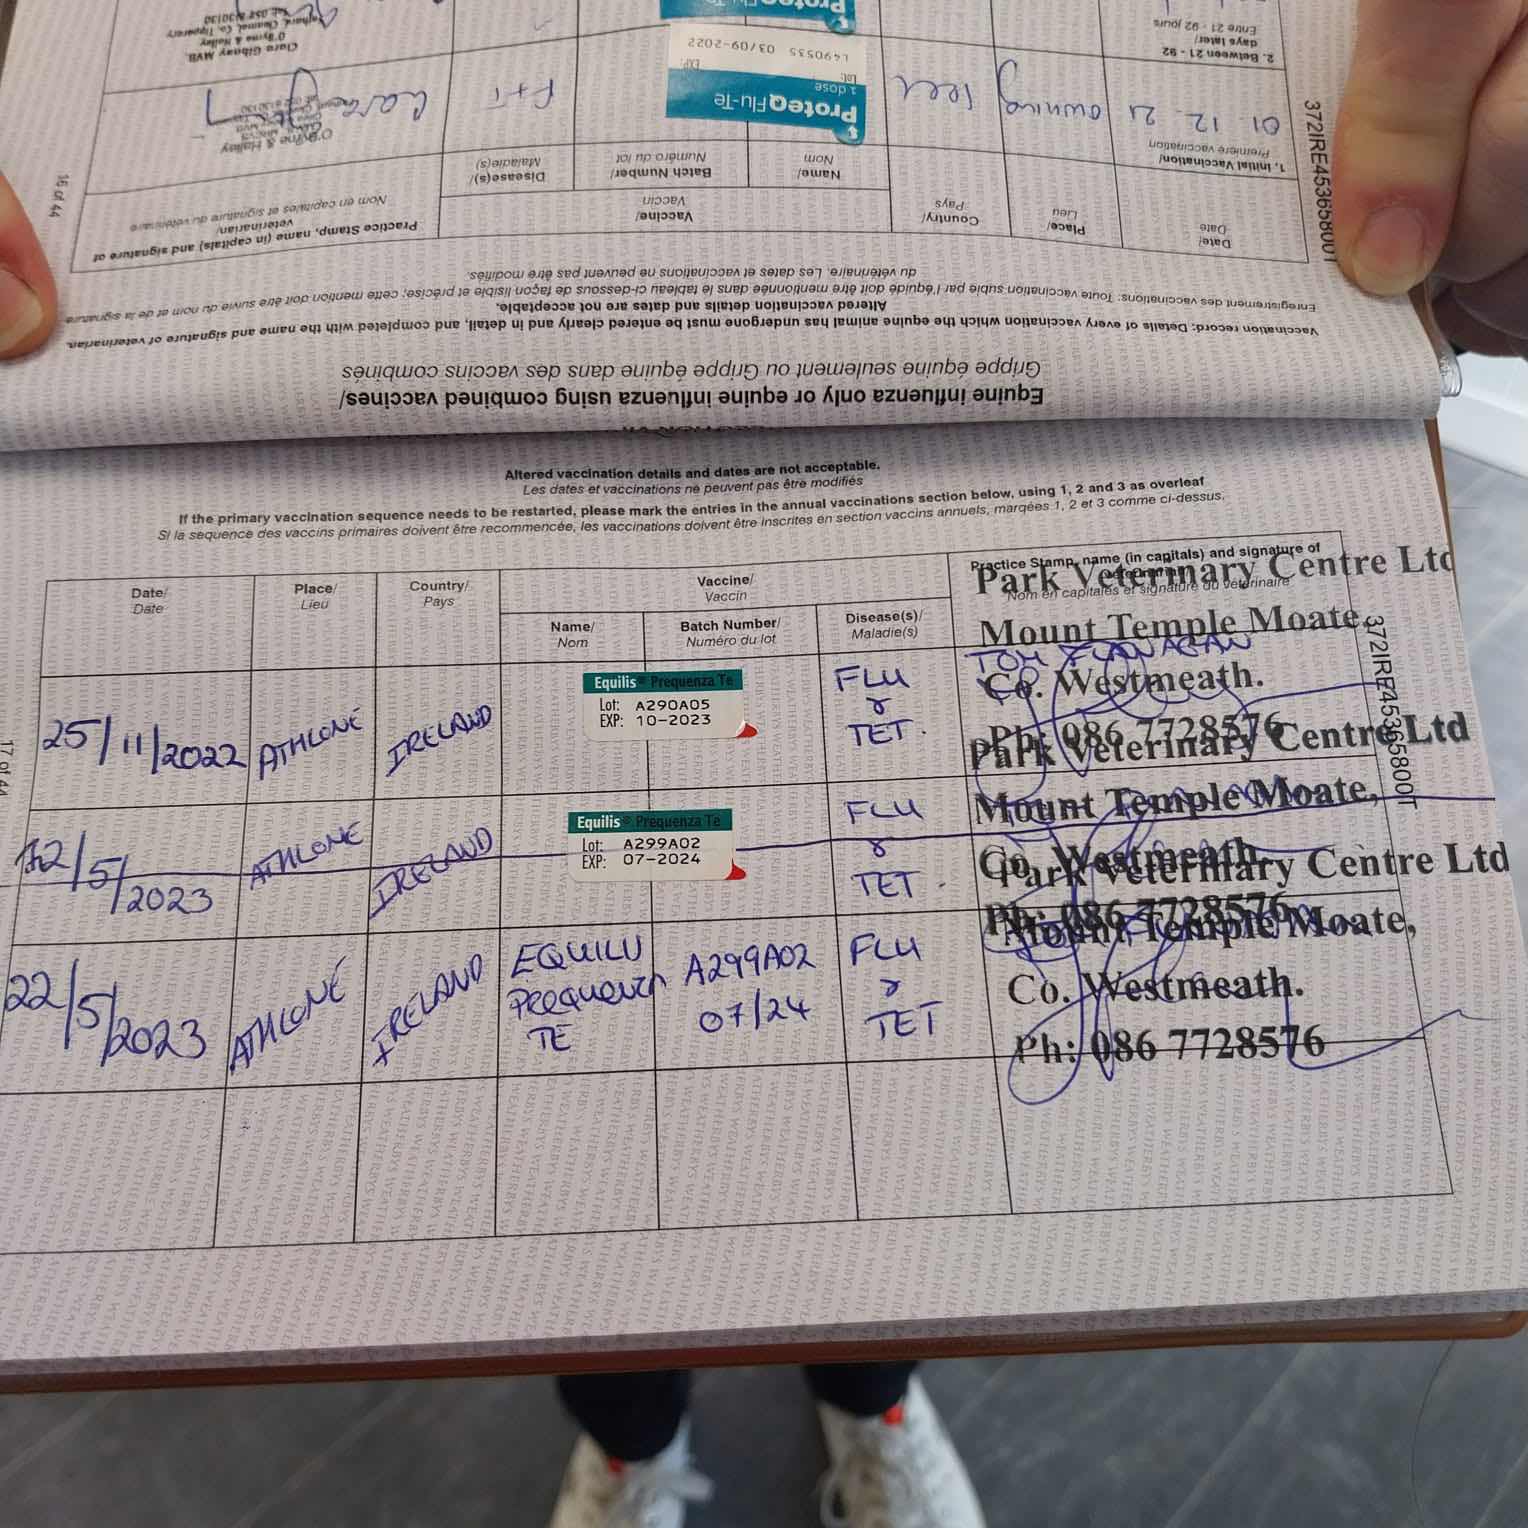 2. Between 21 - 92
days later/
Entre 21 - 92 jours
Clara Gibney MVB.
O'Byrne & Halley
Fethard, Clonmel, Co. Tipperary
ProteqFlu-Te
1. Initial Vaccination/
Première vaccination
01. 12. 21
ProteqFlu-Te
1 dose
Lot:
EXP:
L490535 03/09/2022
F+T
O'Byrne & Halley
Date/
Date
Place/
Lieu
Country/
Pays
Vaccine/
Vaccin
Name/
Nom
Batch Number/
Numéro du lot
Disease(s)/
Maladie(s)
Practice Stamp, name (in capitals) and signature of
veterinarian/
Nom en capitales et signature du vétérinaire
16 of 44
372IRE45365800T
Enregistrement des vaccinations: Toute vaccination subie par l'équidé doit être mentionnée dans le tableau ci-dessous de façon lisible et précise; cette mention doit être suivie du nom et de la signature
du vétérinaire. Les dates et vaccinations ne peuvent pas être modifiés.
Vaccination record: Details of every vaccination which the equine animal has undergone must be entered clearly and in detail, and completed with the name and signature of veterinarian.
Altered vaccination details and dates are not acceptable.
Equine influenza only or equine influenza using combined vaccines/
Grippe équine seulement ou Grippe équine dans des vaccins combinés
Altered vaccination details and dates are not acceptable.
Les dates et vaccinations ne peuvent pas être modifiés
If the primary vaccination sequence needs to be restarted, please mark the entries in the annual vaccinations section below, using 1, 2 and 3 as overleaf
Si la sequence des vaccins primaires doivent être recommencée, les vaccinations doivent être inscrites en section vaccins annuels, marqées 1, 2 et 3 comme ci-dessus.
Date/
Date
Place/
Lieu
Country/
Pays
Vaccine/
Vaccin
Name/
Nom
Batch Number/
Numéro du lot
Disease(s)/
Maladie(s)
Practice Stamp, name (in capitals) and signature of
Nom en capitales et signature du vétérinaire
25/11/2022
ATHLONE
IRELAND
Equilis® Prequenza Te
Lot: A290A05
EXP: 10-2023
FLU
&
TET.
Park Veterinary Centre Ltd
Mount Temple Moate,
TOM FLANAGAN
Co. Westmeath.
Ph: 086 7728576
12/5/2023
ATHLONE
IRELAND
Equilis® Prequenza Te
Lot: A299A02
EXP: 07-2024
FLU
&
TET.
Park Veterinary Centre Ltd
Mount Temple Moate,
Co. Westmeath.
Ph: 086 7728576
22/5/2023
ATHLONE
IRELAND
EQUILU
PREQUENZA
TE
A299A02
07/24
FLU
&
TET
Park Veterinary Centre Ltd
Mount Temple Moate,
Co. Westmeath.
Ph: 086 7728576
17 of 44
372IRE45365800T